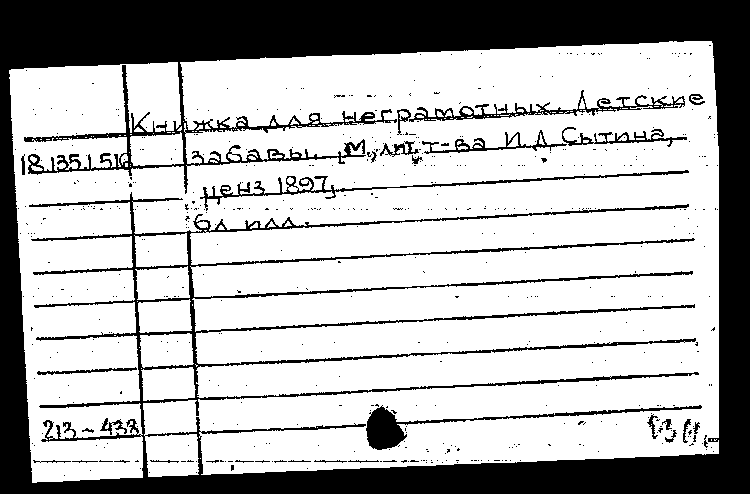 Книжка для неграмотных. Детские
18.135.1.516 забавы. [М., лит. т-ва И Д Сытина,
ценз 1897].
6л илл.
213~438